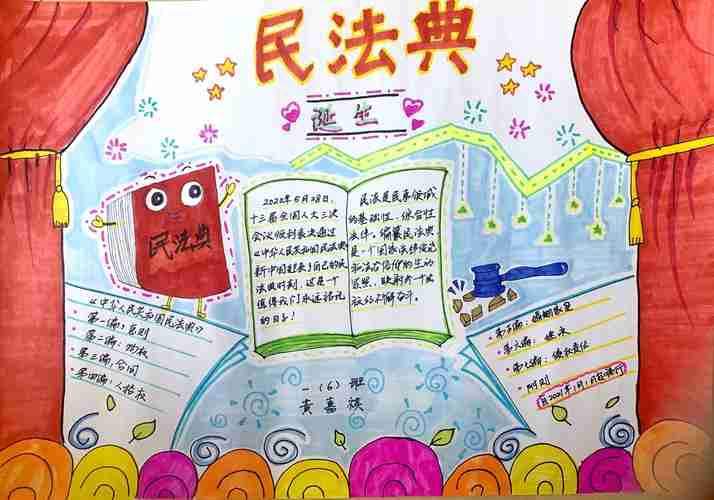 民法典
诞生
民法典
2020年5月28日,
十三届全国人大三次
会议顺利表决通过
《中华人民共和国民法典》
新中国起来了自己的民
法典时刻,这是一个
值得我们永远铭记
的日子!
民法是民事领域
的基础性、综合性
法律,编纂民法典
是一个国家法律规范
《中华人民共和国民法典》
·第一编:总则
·第二编:物权
·第三编:合同
·第四编:人格权
·第五编:婚姻家庭
·第六编:继承
·第七编:侵权责任
·附则
自2021年1月1日起施行
一(6)班
黄嘉